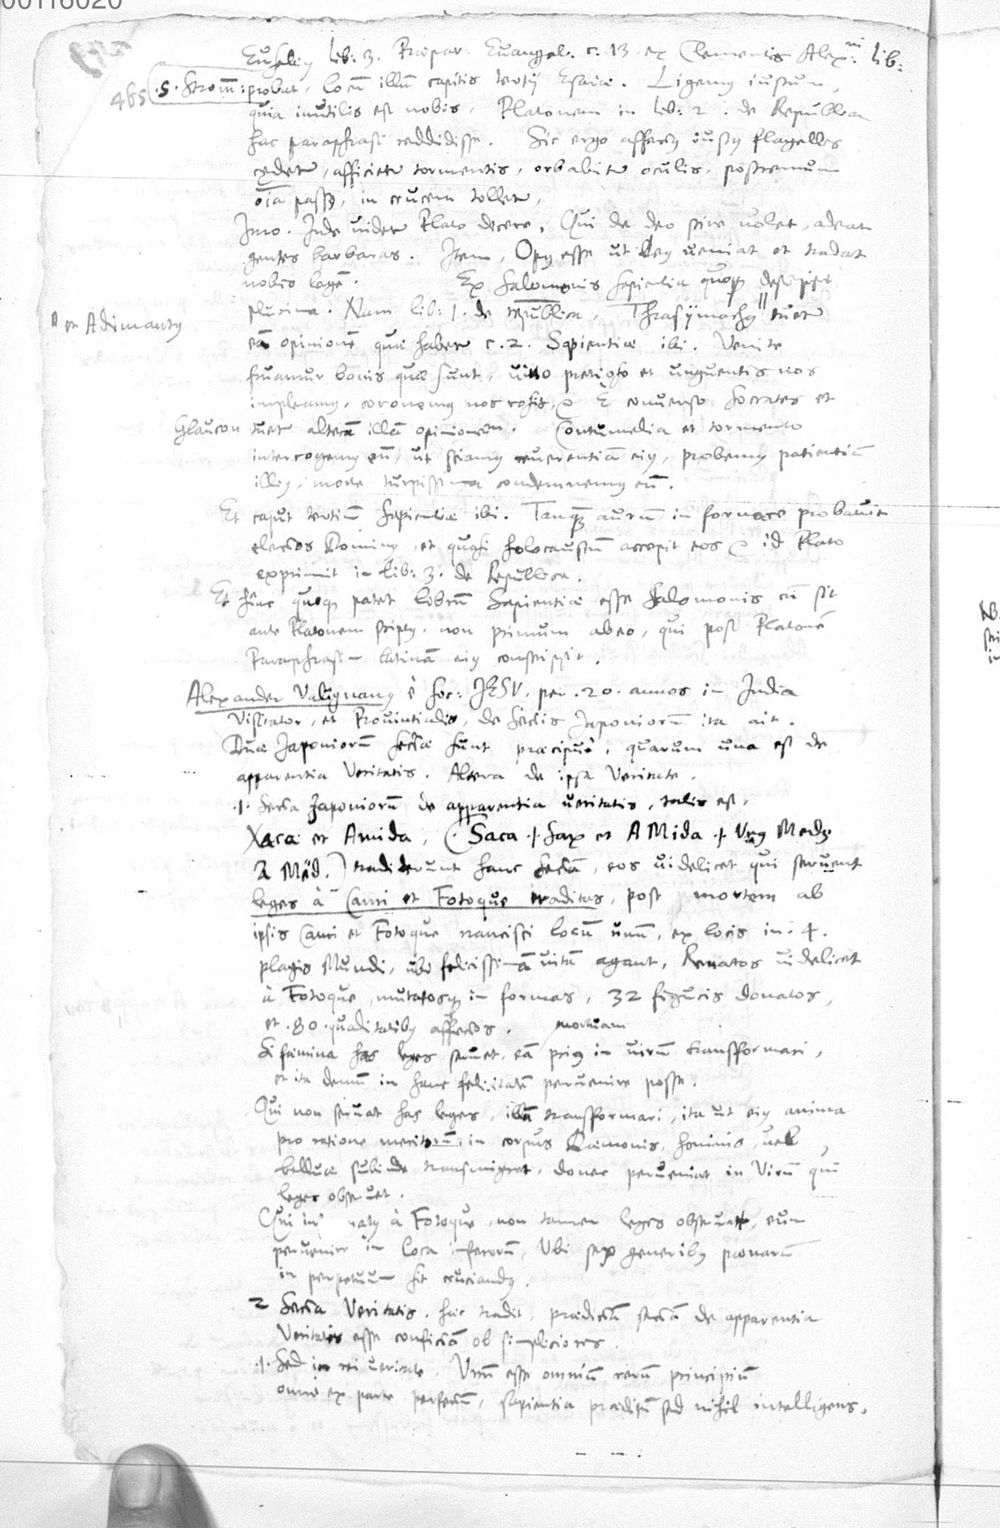 00116020
465
Eusebiꝯ Lib: 3. Præpar. Euangel. c. 13. ex Clementis Alex: lib:
.5. Strom: probat, locū illū capitis tertij Esaiæ. Ligemꝯ iustum,
quia inutilis est nobis. Platonem in lib: 2. de Republica
hac paraphrasi reddidisse. Sic ergo affectꝯ iustꝯ flagellis
cędetr, afficietr tormentis, orbabitr oculis, postremum
oīa passꝯ, in crucem tolletr,
Imo. Inde videtr Plato dicere, Qui de deo scire uolet, adeat
gentes barbaras. Item, Opꝯ esse ut Rex ueniat et tradat
nobis legē. Ex Salomonis sapientia quoqꝫ descripsit
plurima. Nam lib: 1. de republica, Thrasÿmachꝯ" tuetr
" et Adimantꝯ
eā opinionē quæ habetr c. 2. Sapientiæ ibi. Venite
fruamur bonis quæ sunt, uino pretioso et unguentis nos
impleamꝯ, coronemꝯ nos rosis, È conuerso Socrates et
Glaucon tuetr alterā illā opinionem. Contumelia et tormento
interrogemꝯ eū, ut sciamꝯ reuerentiā eiꝯ, probemꝯ patientiā
illiꝯ, morte turpissima condemnemꝯ eū.
Et caput tertiū Sapientiæ ibi. Tanqꝫ aurū in fornace probauit
electos Dominꝯ, et quasi holocaustū accepit eos id Plato
exprimit in lib: 3. de Republica.
Et hinc quoqꝫ patet librū Sapientiæ esse Salomonis cū sit
ante Platonem scriptꝯ, non primum ab eo, qui post Platonē
Paraphrasim latinā eiꝯ conscripsit.
Alexander Valignanꝯ è Soc: IESV. per .20. annos in India
Visitator, et Prouintialis, de sectis Japoniorū ita ait.
Duæ Japoniorū sectæ sunt præcipuę, quarum una est de
apparentia Veritatis. Altera de ipsa Veritate.
.1. Secta Japoniorū de apparentia ueritatis, talis est,
Xaca et Amida, (Saca .|. Sax et AMida .|. Vꝯ Medꝯ
A Mäd.) tradiderunt hanc sectā, eos uidelicet qui seruent
leges à Cami et Fotoque traditas, post mortem ab
ipsis Cami et Fotoque nancisci locū unū, ex locis in .4.
plagis Mundi, ubi felicissimā uitā agant, Renatos uidelicet
à Fotoque, mutatosqꝫ in formas, 32 figuris donatos,
et .80. qualitatibꝯ affectos.
mortuam
Si fæmina has leges seruet, eā priꝯ in uirū transformari,
et ita demū in hanc felicitatē peruenire posse.
Qui non seruat has leges, illū transformari, ita ut eiꝯ anima
pro ratione meritorū, in corpus Dæmonis, hominis, uel
belluæ subinde transmigret, donec perueniat in Virū qui
leges obseruet.
à Fotoque, non tamen leges obseruet, eum
peruenire in loca inferorū, Vbi sex generibꝯ pœnarū
in perpetuum sit cruciandꝯ.
2 Secta Veritatis. hæc tradit, prædictā sectā de apparentia
Veritatis esse confictā ob simpliciores
.1. Sed in rei ueritate, Vnū esse omniū rerū principiū
omni ex parte perfectū, sapientia præditū sed nihil intelligens.